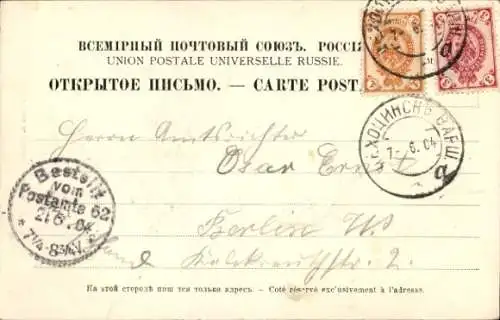 ВСЕМІРНЫЙ ПОЧТОВЫЙ СОЮЗЪ. РОССІ
UNION POSTALE UNIVERSELLE RUSSIE.
ОТКРЫТОЕ ПИСЬМО. — CARTE POST.
ХОЦИНСКЪ ВАРШ.
7. 6. 04
a
Herrn Amtsrichter
Oscar Ernst
Bestellt
vom
Postamte 62
21 6. 04
7¼-8¾ V.
Berlin W
Kalckreuthstr. 2.
На этой сторонѣ пишется только адресъ. — Coté réservé exclusivement à l'adresse.